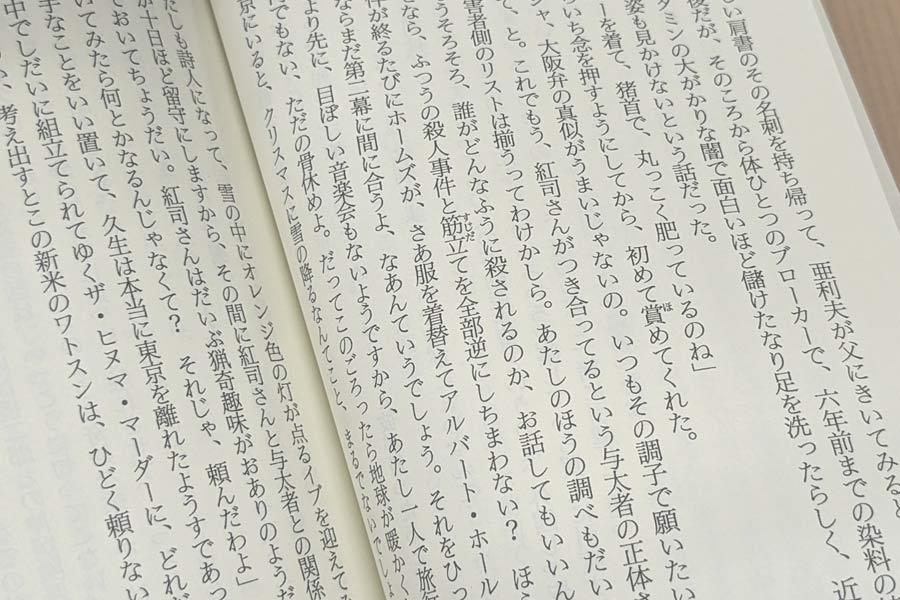 い肩書のその名刺を持ち帰って、亜利夫が父にきいてみると
後だが、そのころから体ひとつのブローカーで、六年前までの染料の
タミンの大がかりな闇で面白いほど儲けたなり足を洗ったらしく、近
姿も見かけないという話だった。
ーを着て、猪首で、丸っこく肥っているのね」
いちいち念を押すようにしてから、初めて賞めてくれた。
ジャ、大阪弁の真似がうまいじゃないの。いつもその調子で願いたい
て、と。これでもう、紅司さんがつき合ってるという与太者の正体
害者側のリストは揃うってわけかしら。あたしのほうの調べもだい
うそろそろ、誰がどんなふうに殺されるのか、お話してもいいん
さなら、ふつうの殺人事件と筋立てを全部逆にしちまわない? ほ
件が終るたびにホームズが、さあ服を着替えてアルバート・ホール
ならまだ第二幕に間に合うよ、なあんていうでしょう。それをひっ
より先に、目ぼしい音楽会もないようですから、あたし一人で旅行
でもない、ただの骨休めよ。だってこのごろったら地球が暖かく
京にいると、クリスマスに雪の降るなんてこと、まるでないでしょ
雪の中にオレンジ色の灯が点るイブを迎えて
たしも詩人になって、
か十日ほど留守にしますから、その間に紅司さんと与太者との関係
ておいてちょうだい。紅司さんはだいぶ猟奇趣味がおありのようだ
いてみたら何とかなるんじゃなくて? それじゃ、頼んだわよ」
手なことをいい置いて、久生は本当に東京を離れたようすであっ
中でしだいに組立てられてゆくザ・ヒヌマ・マーダーに、どれ
考え出すとこの新米のワトスンは、ひどく頼りない